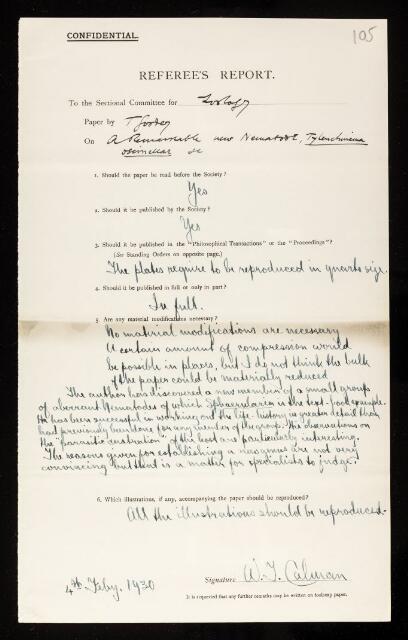 CONFIDENTIAL.
105
REFEREE'S REPORT.
To the Sectional Committee for Zoology
Paper by T Goodey
On A Remarkable new Nematode, Tylenchinema
oscinellae &c
1. Should the paper be read before the Society?
Yes
2. Should it be published by the Society?
Yes
3. Should it be published in the "Philosophical Transactions" or the "Proceedings"?
(See Standing Orders on opposite page.)
The plates require to be reproduced in quarto size.
4. Should it be published in full or only in part?
In full.
5. Are any material modifications necessary?
No material modifications are necessary
A certain amount of compression would
be possible in places, but I do not think the bulk
of the paper could be materially reduced
The author has discovered a new member of a small group
of aberrant Nematodes of which Sphaerularia is the best-known example.
He has been successful in working out the life-history in greater detail than
had previously been done for any member of the group. The observations on
the "parasitic castration" of the host are particularly interesting.
The reasons given for establishing a new genus are not very
convincing but that is a matter for specialists to judge.
6. Which illustrations, if any, accompanying the paper should be reproduced?
All the illustrations should be reproduced.
4th Feby. 1930
Signature W. T. Calman
It is requested that any further remarks may be written on foolscap paper.